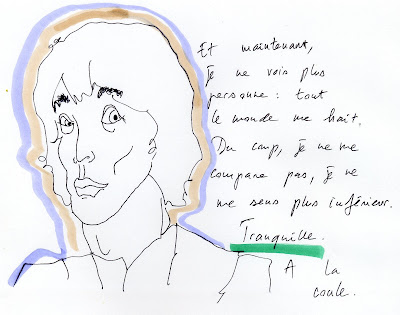 Et maintenant,
je ne vois plus
personne : tout
le monde me hait.
Du coup, je ne me
compare pas, je ne
me sens plus inférieur.
Tranquille.
A la
coule.